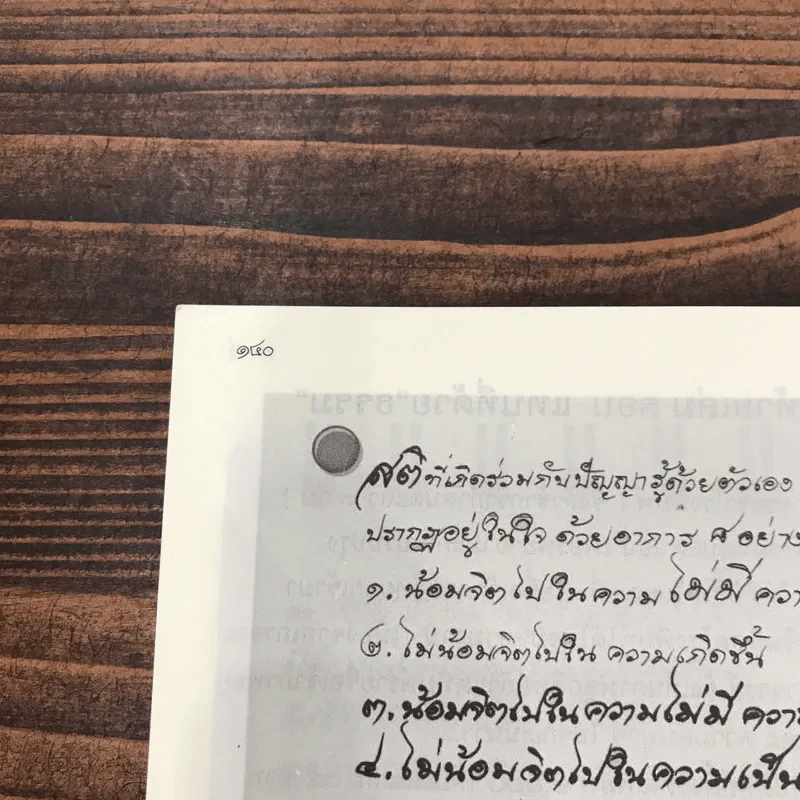 ๑๔๐
สติที่เกิดร่วมกับปัญญารู้ด้วยตัวเอง
ปรากฏอยู่ในใจ ด้วยอาการ ๔ อย่าง
๑. น้อมจิตไปในความไม่มี ควา
๒. ไม่น้อมจิตไปใน ความเกิดขึ้น
๓. น้อมจิตไปในความไม่มี ควา
๔. ไม่น้อมจิตไปในความเป็น